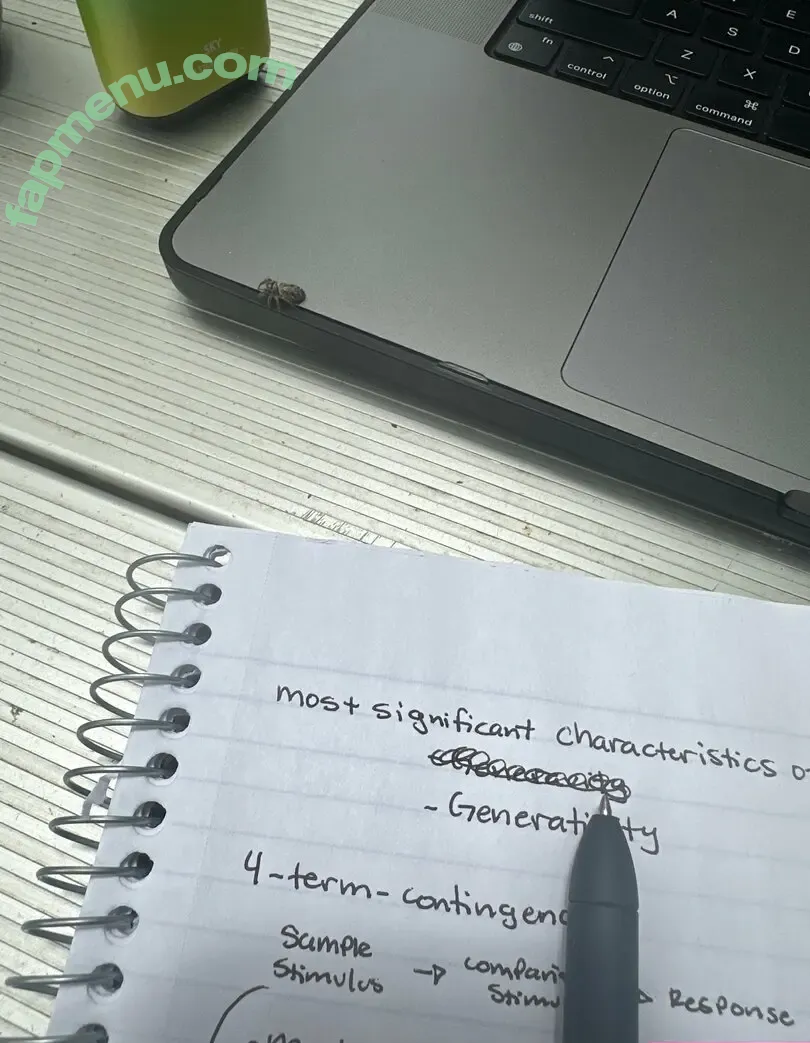 SKY
fapmenu.com
A
E
shift
S
D
fn
control
Z
option
X
command
most significant characteristics
- Generati
4-term-contingenc
Sample
Stimulus → compari
Stimu
Response